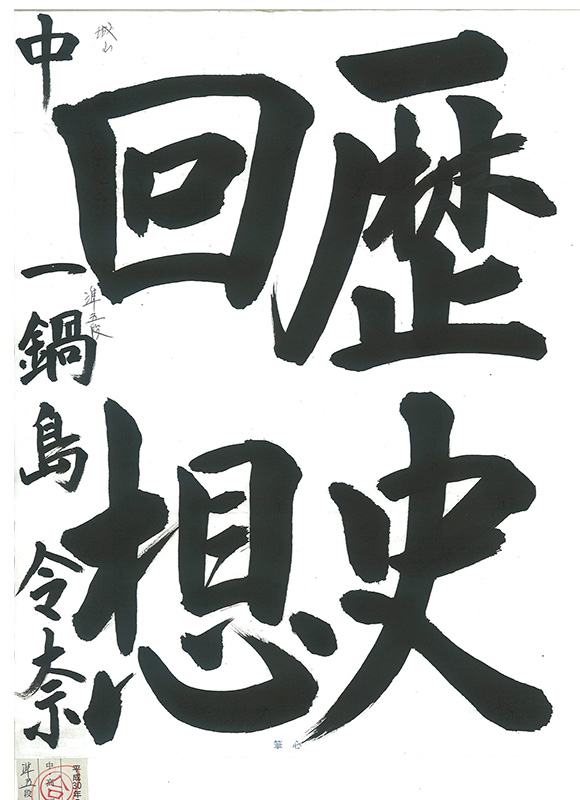 歴史
回想
中一 鍋島 令奈
城山
準五段
心筆
平成30年
中
準五段